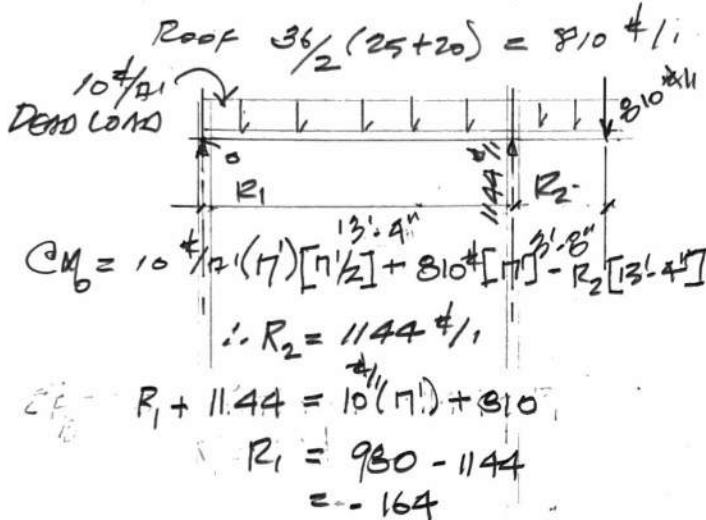 Roof 36/2 (25+20) = 810 #/'
10 #/□'
DEAD LOAD
810 #/'
0
R₁
1144 #/'
R₂
13'-4"
3'-8"
↻M₀ = 10 #/□'(17')[17'/2] + 810#[17'] - R₂[13'-4"]
∴ R₂ = 1144 #/'
R₁ + 1144 = 10 #/'(17') + 810
R₁ = 980 - 1144
= - 164